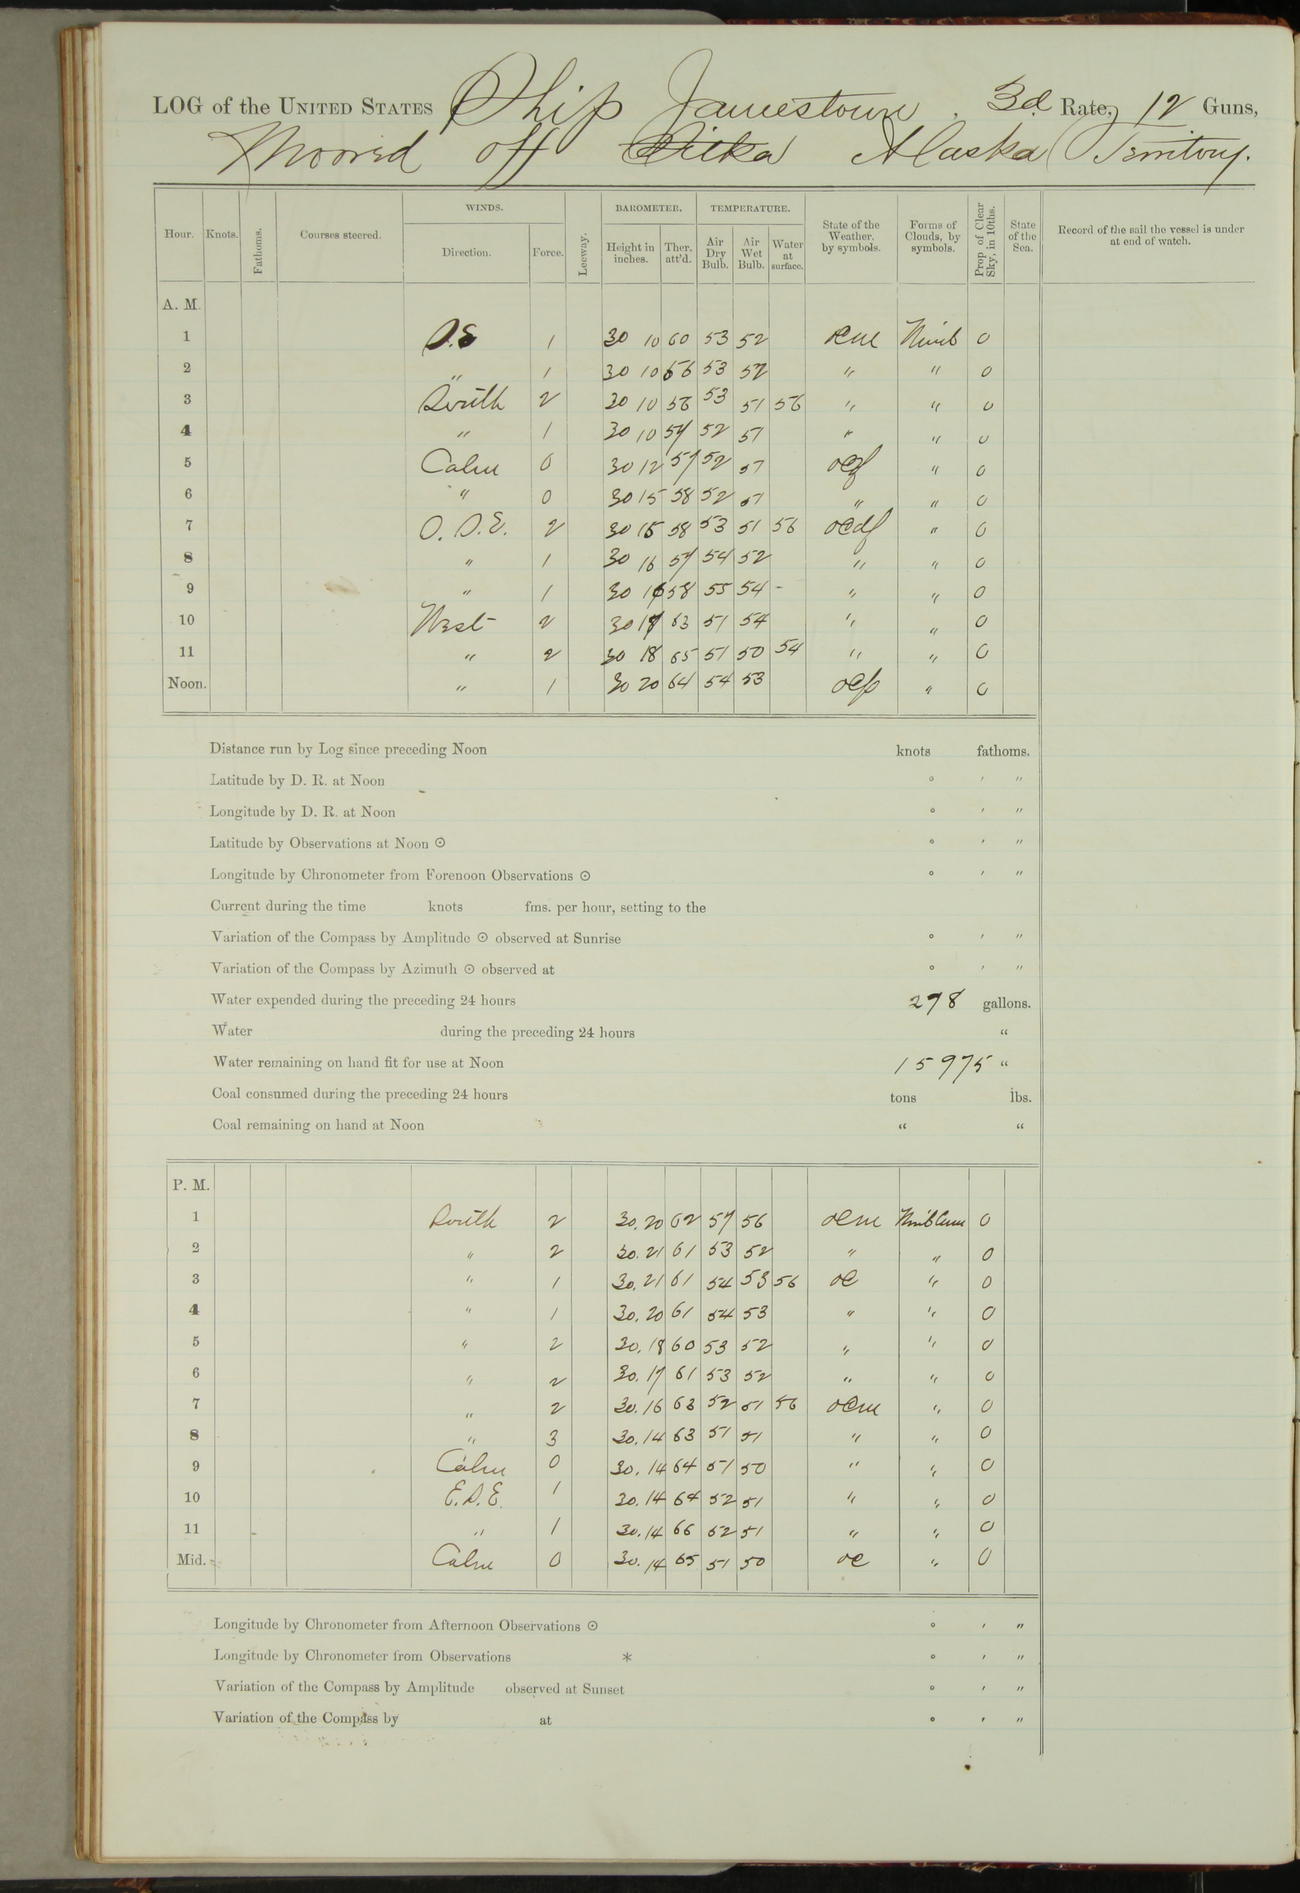 LOG of the UNITED STATES Ship Jamestown, 3d Rate, 12 Guns,
Moored off Sitka Alaska Territory.
Hour. Knots. Fathoms. Courses steered. WINDS. Direction. Force. Leeway. BAROMETER. Height in inches. Ther. att'd. TEMPERATURE. Air Dry Bulb. Air Wet Bulb. Water at surface. State of the Weather, by symbols. Forms of Clouds, by symbols. Prop. of Clear Sky, in 10ths. State of the Sea. Record of the sail the vessel is under at end of watch.
A. M.
1 S.E 1 30 10 60 53 52 ocm Nimb 0
2 " 1 30 10 56 53 52 " " 0
3 South 2 30 10 56 53 51 56 " " 0
4 " 1 30 10 57 52 51 " " 0
5 Calm 0 30 12 57 52 51 ocf " 0
6 " 0 30 15 58 52 51 " " 0
7 S.S.E. 2 30 15 58 53 51 56 ocdf " 0
8 " 1 30 16 57 54 52 " " 0
9 " 1 30 16 58 55 54 - " " 0
10 West 2 30 18 63 51 54 " " 0
11 " 2 30 18 65 51 50 54 " " 0
Noon. " 1 30 20 64 54 53 ocp " 0
Distance run by Log since preceding Noon knots fathoms.
Latitude by D. R. at Noon ° ′ ″
Longitude by D. R. at Noon ° ′ ″
Latitude by Observations at Noon ⊙ ° ′ ″
Longitude by Chronometer from Forenoon Observations ⊙ ° ′ ″
Current during the time knots fms. per hour, setting to the
Variation of the Compass by Amplitude ⊙ observed at Sunrise ° ′ ″
Variation of the Compass by Azimuth ⊙ observed at ° ′ ″
Water expended during the preceding 24 hours 278 gallons.
Water during the preceding 24 hours "
Water remaining on hand fit for use at Noon 15975 "
Coal consumed during the preceding 24 hours tons lbs.
Coal remaining on hand at Noon " "
P. M.
1 South 2 30.20 62 57 56 ocm Nimb Cum 0
2 " 2 30.21 61 53 52 " " 0
3 " 1 30.21 61 54 53 56 oc " 0
4 " 1 30.20 61 54 53 " " 0
5 " 2 30.18 60 53 52 " " 0
6 " 2 30.17 61 53 52 " " 0
7 " 2 30.16 63 52 51 56 ocm " 0
8 " 3 30.14 63 51 51 " " 0
9 Calm 0 30.14 64 51 50 " " 0
10 E.S.E. 1 30.14 64 52 51 " " 0
11 " 1 30.14 66 52 51 " " 0
Mid. Calm 0 30.14 65 51 50 oc " 0
Longitude by Chronometer from Afternoon Observations ⊙ ° ′ ″
Longitude by Chronometer from Observations * ° ′ ″
Variation of the Compass by Amplitude observed at Sunset ° ′ ″
Variation of the Compass by at ° ′ ″